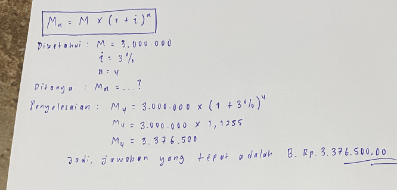 Mn = M x (1 + i)ⁿ
Diketahui : M = 3.000.000
i = 3%
n = 4
Ditanya : Mn = ... ?
Penyelesaian : M₄ = 3.000.000 x (1 + 3%)⁴
M₄ = 3.000.000 x 1,1255
M₄ = 3.376.500
Jadi, jawaban yang tepat adalah B. Rp. 3.376.500,00